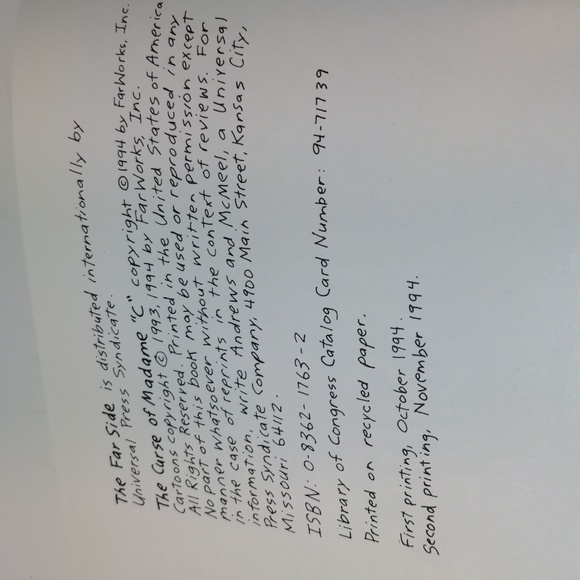 The Far Side is distributed internationally by
Universal Press Syndicate.
The Curse of Madame "C" copyright © 1994 by FarWorks, Inc.
Cartoons copyright © 1993, 1994 by FarWorks, Inc.
All Rights Reserved. Printed in the United States of America
No part of this book may be used or reproduced in any
manner whatsoever without written permission except
in the case of reprints in the context of reviews. For
information, write Andrews and McMeel, a Universal
Press Syndicate Company, 4900 Main Street, Kansas City,
Missouri 64112.
ISBN: 0-8362-1763-2
Library of Congress Catalog Card Number: 94-71739
Printed on recycled paper.
First printing, October 1994.
Second printing, November 1994.